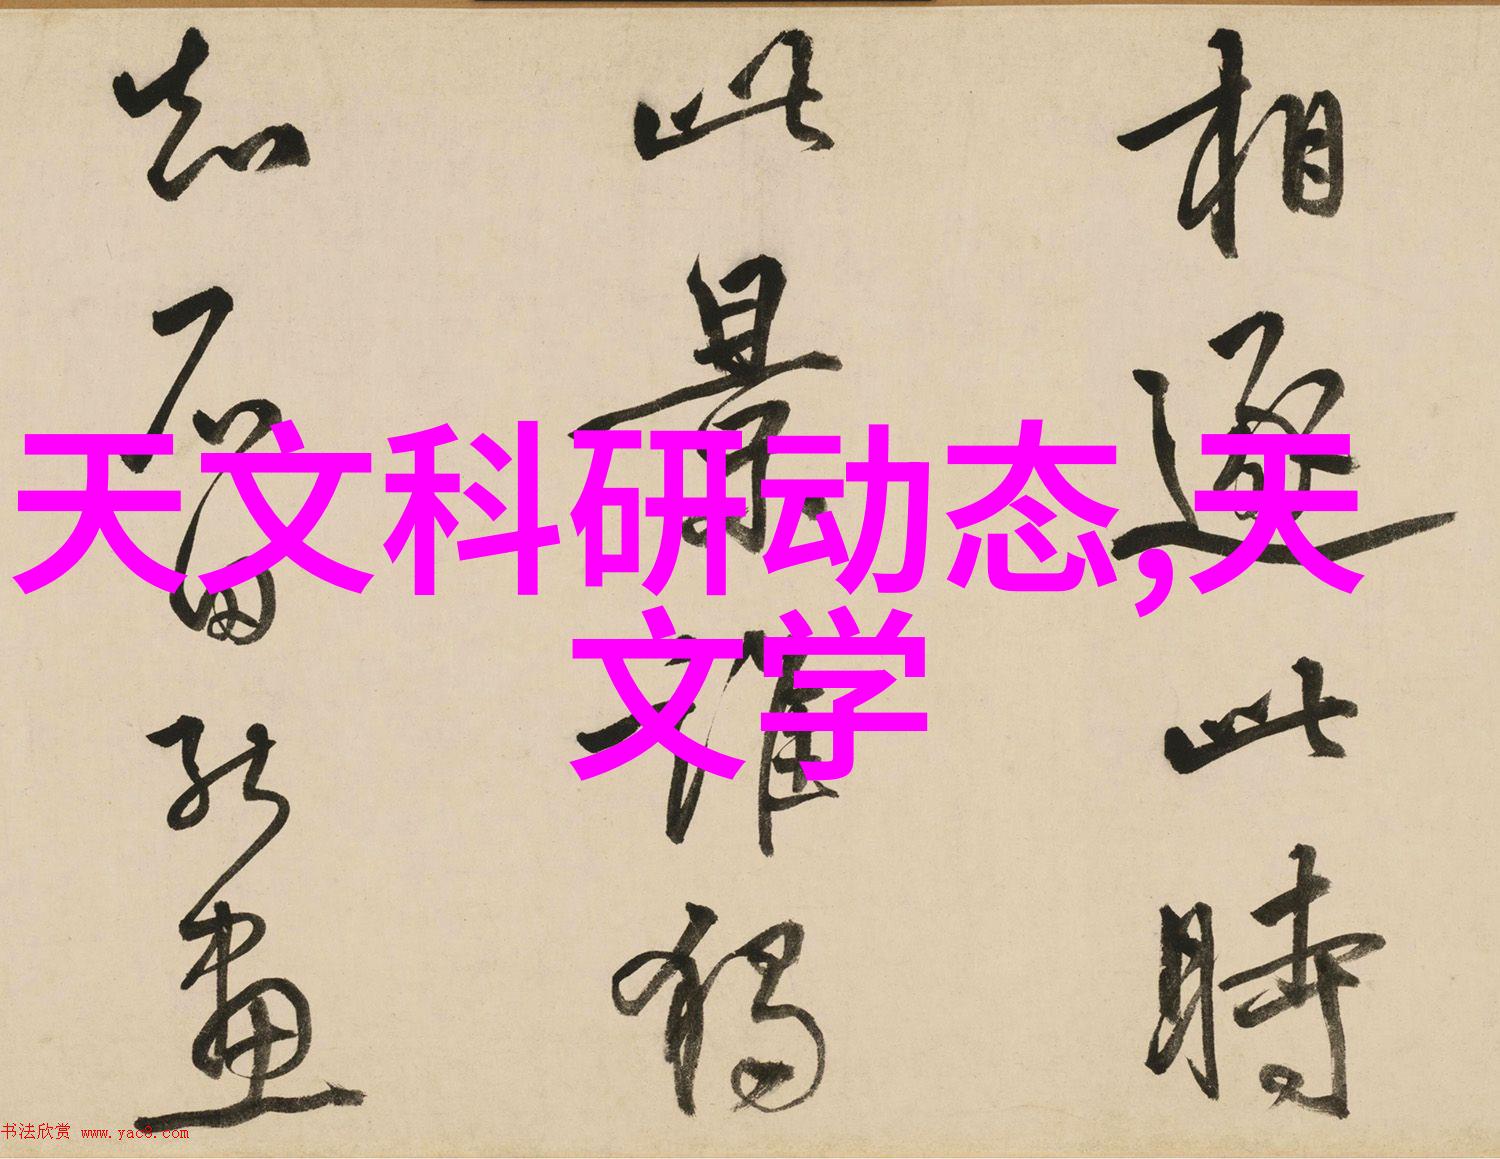 天文科研动态,天
文学
相逐此時
此景誰獨
知石田能畫
书法欣赏 www.yac8.com